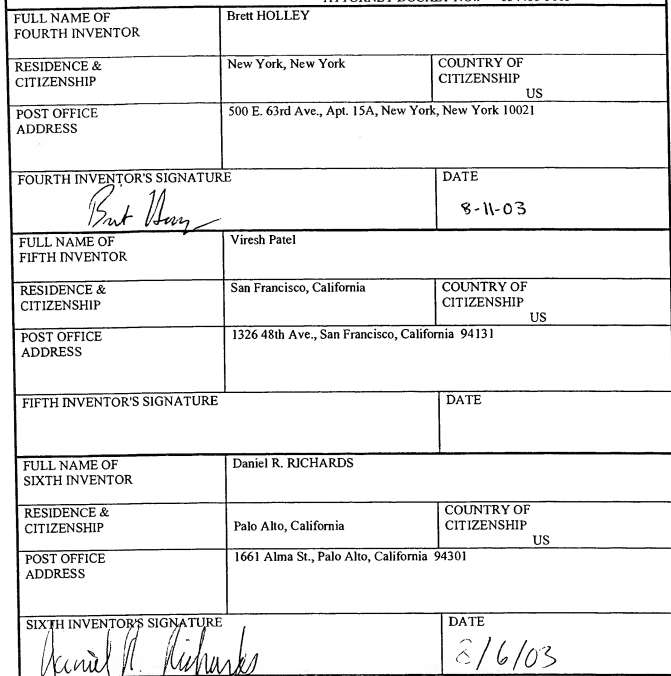 FULL NAME OF
FOURTH INVENTOR
Brett HOLLEY
RESIDENCE &
CITIZENSHIP
New York, New York
COUNTRY OF
CITIZENSHIP
US
POST OFFICE
ADDRESS
500 E. 63rd Ave., Apt. 15A, New York, New York 10021
FOURTH INVENTOR'S SIGNATURE
DATE
8-11-03
FULL NAME OF
FIFTH INVENTOR
Viresh Patel
RESIDENCE &
CITIZENSHIP
San Francisco, California
COUNTRY OF
CITIZENSHIP
US
POST OFFICE
ADDRESS
1326 48th Ave., San Francisco, California 94131
FIFTH INVENTOR'S SIGNATURE
DATE
FULL NAME OF
SIXTH INVENTOR
Daniel R. RICHARDS
RESIDENCE &
CITIZENSHIP
Palo Alto, California
COUNTRY OF
CITIZENSHIP
US
POST OFFICE
ADDRESS
1661 Alma St., Palo Alto, California 94301
SIXTH INVENTOR'S SIGNATURE
Daniel R. Richards
DATE
8/6/03